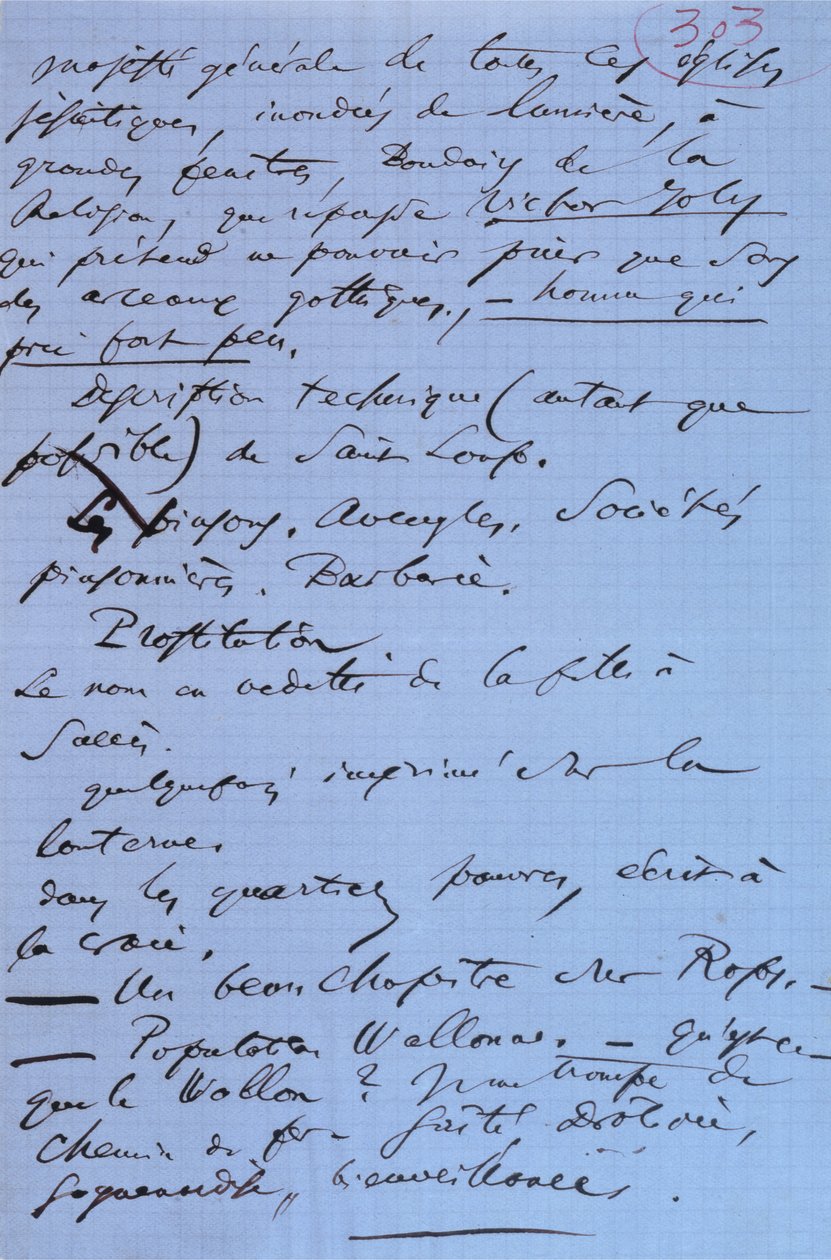 303
majesté générale de toutes ces églises
jésuitiques, inondées de lumière, à
grandes fenêtres, Boudoirs de la
Religion, que répudie Victor Joly
qui prétend ne pouvoir prier que sous
des arceaux gothiques, – homme qui
prie fort peu.
Description technique (autant que
possible) de Saint Loup.
Les pinsons. Aveugles. Sociétés
pinsonnières. Barbarie.
Prostitution
Le nom en vedette de la fille à
Succès.
quelquefois imprimé sur la
lanterne.
dans les quartiers pauvres, écrit à
la craie.
— Un beau Chapitre sur Rops. –
— Population Wallonne. – qu'est-ce
que le Wallon ? Je me trompe de
Chemin de fer – Gaîté, Drôlerie,
goguenardise, bienveillance.